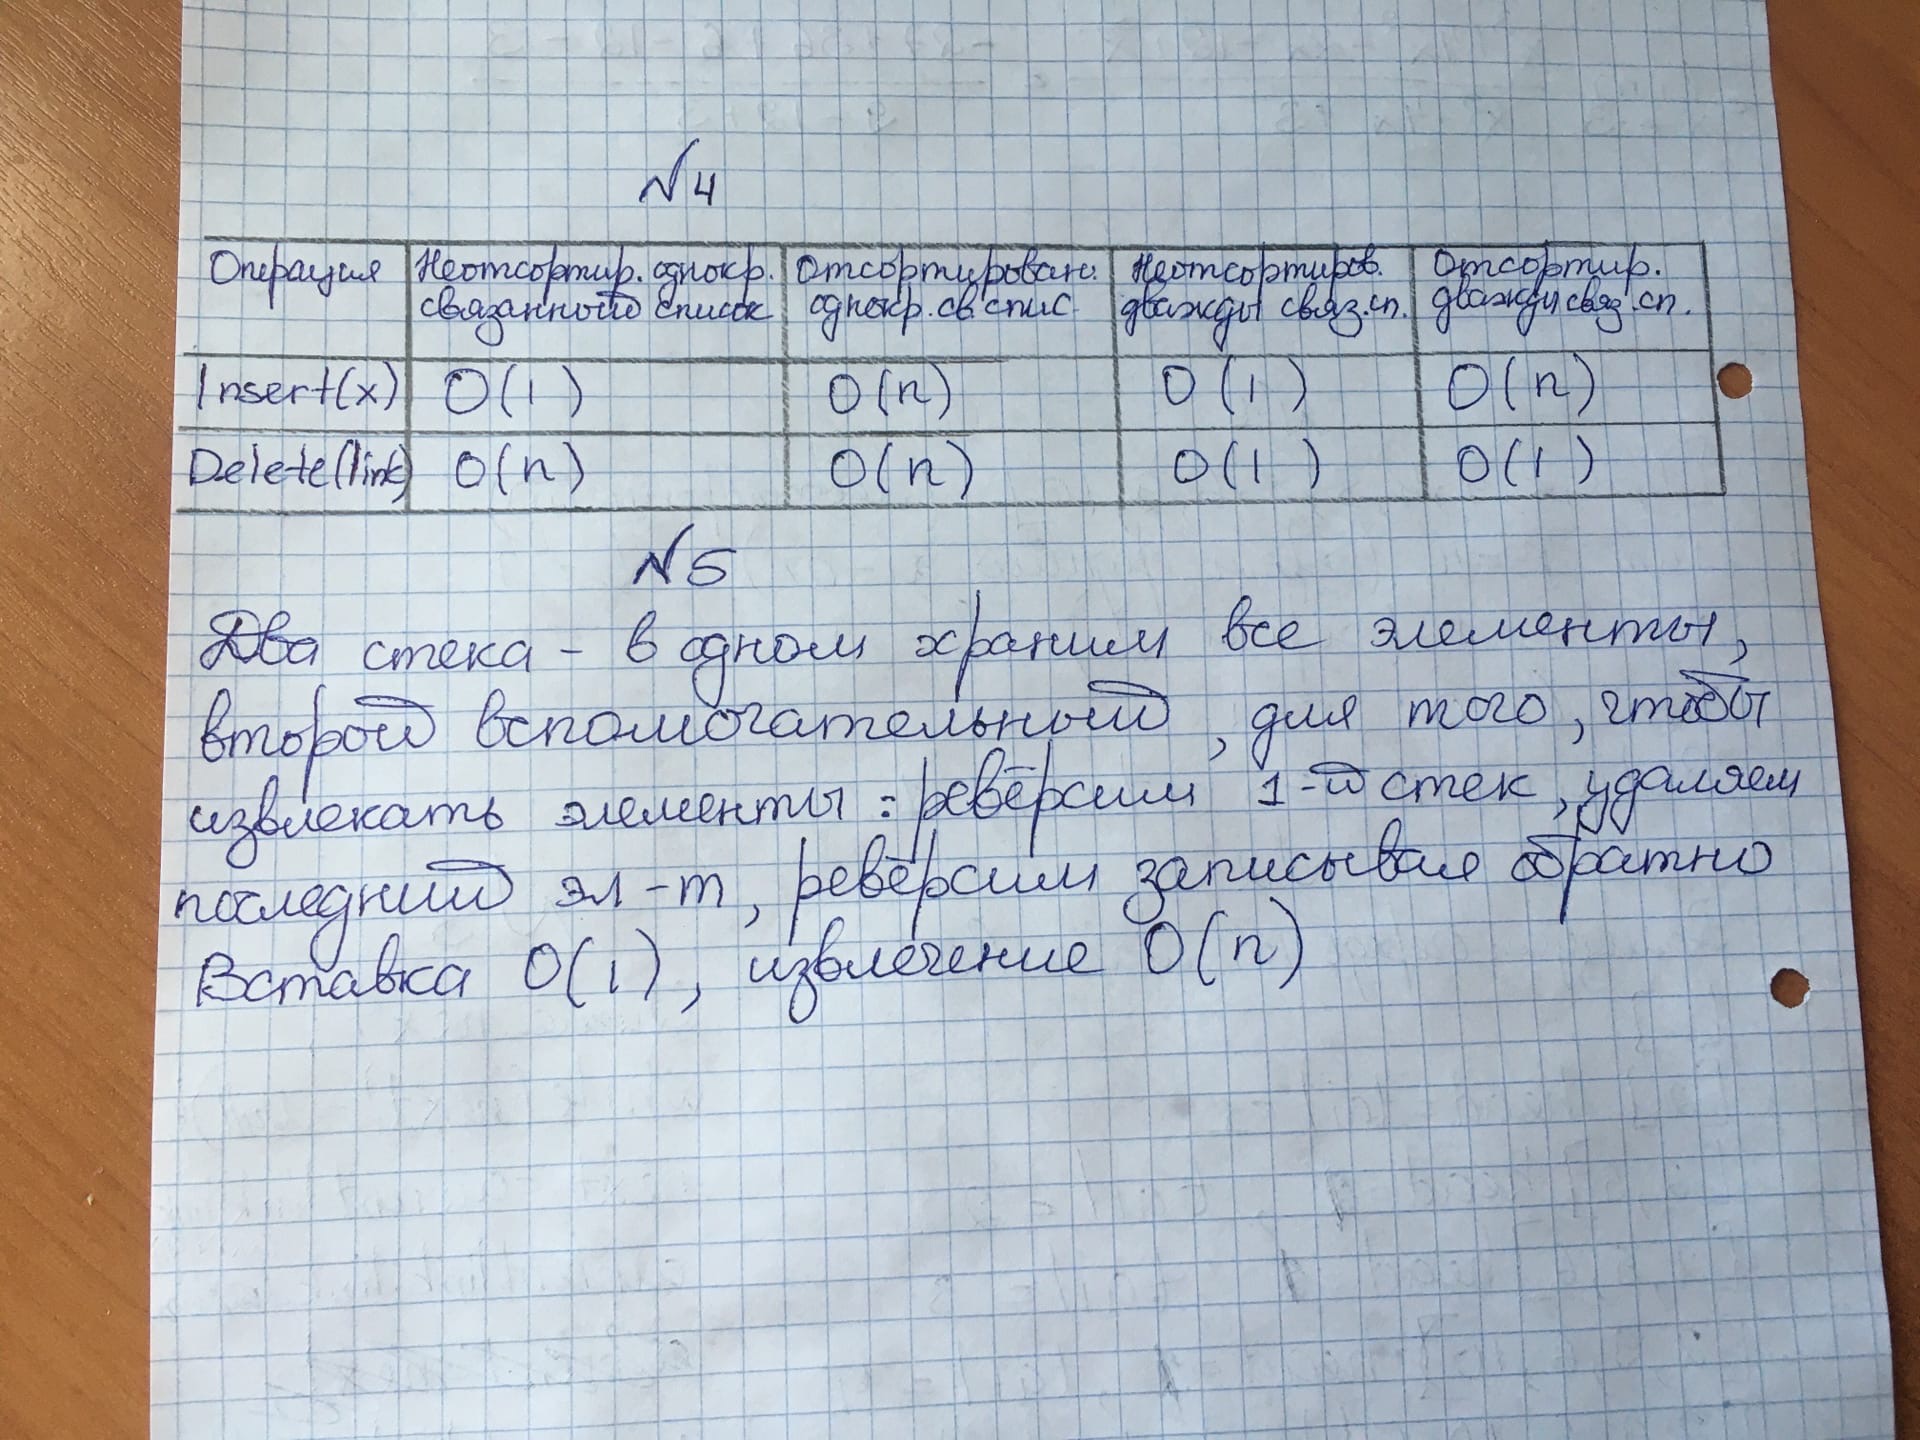 №4
Операция Неотсортир. однокр. связанный список Отсортирован. однокр. св. спис. Неотсортиров. дважды связ. сп. Отсортир. дважды связ. сп.
Insert(x) O(1) O(n) O(1) O(n)
Delete(link) O(n) O(n) O(1) O(1)
№5
Два стека - в одном храним все элементы,
второй вспомогательный, для того, чтобы
извлекать элементы: реверсим 1-й стек, удаляем
последний эл-т, реверсим записывая обратно
Вставка O(1), извлечение O(n)